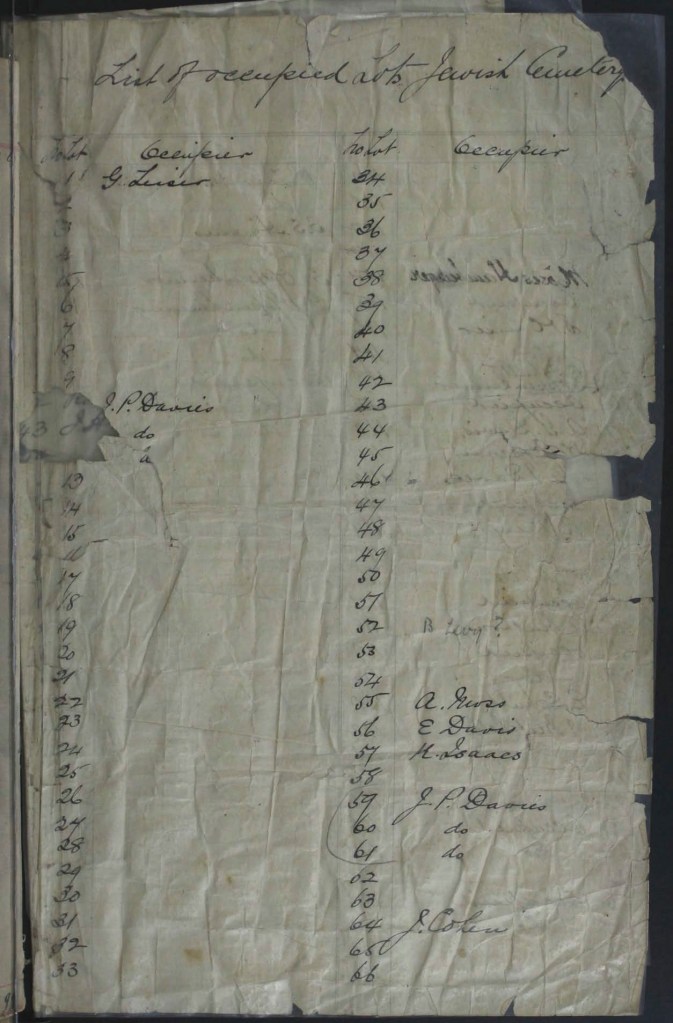 List of occupied Lots Jewish Cemetery
No Lot Occupier
1 G. Leiser
5
6
7
8
9
J. P. Davies
do
13
14
15
17
18
19
20
21
22
23
24
25
26
27
28
29
30
31
32
33
No Lot Occupier
34
35
36
37
38
39
40
41
42
43
44
45
46
47
48
49
50
51
52 B Levy ?
53
54
55 A. Moss
56 E Davis
57 H. Isaacs
58
59 J. P. Davies
60 do
61 do
62
63
64 J. Cohen
65
66